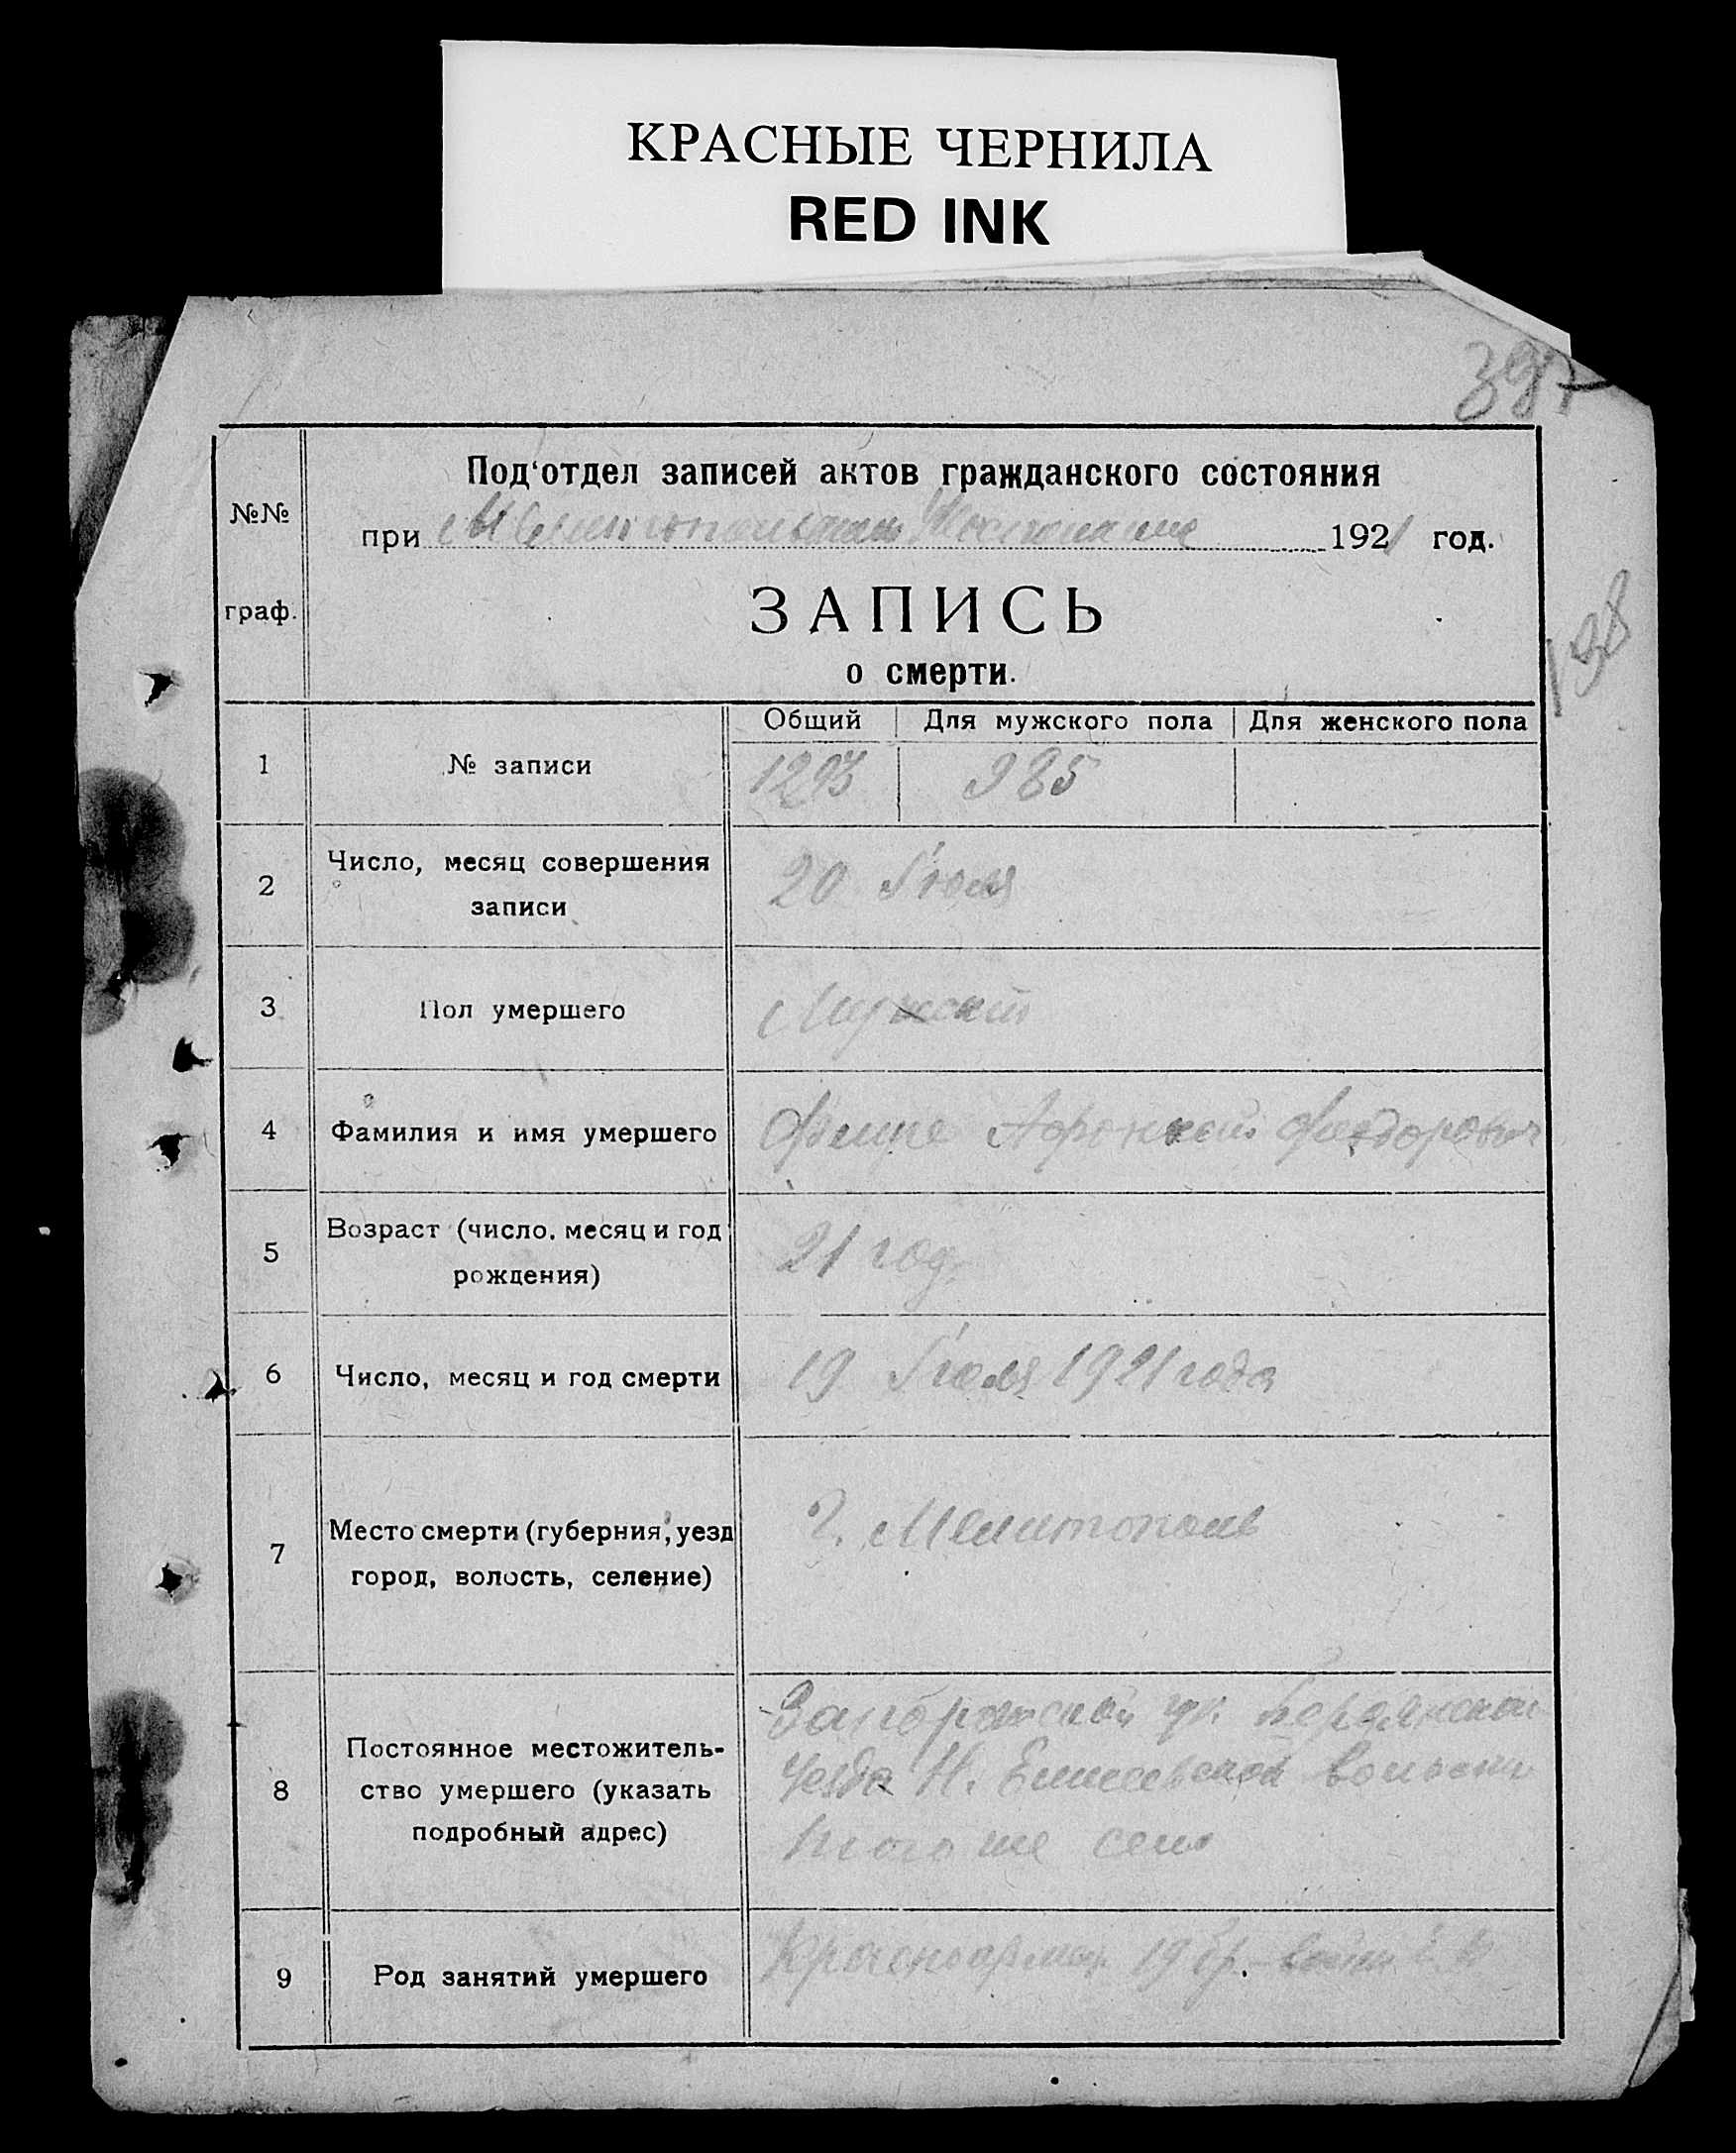 КРАСНЫЕ ЧЕРНИЛА
RED INK
397
Под'отдел записей актов гражданского состояния
№№
при Мелитопольском 1921 год.
граф.
ЗАПИСЬ
о смерти.
198
Общий Для мужского пола Для женского пола
1 № записи 1293 985
2 Число, месяц совершения
записи
20 Июля
3 Пол умершего Мужской
4 Фамилия и имя умершего Федорович
5 Возраст (число, месяц и год
рождения)
21 год
6 Число, месяц и год смерти 19 Июля 1921 года
7 Место смерти (губерния, уезд
город, волость, селение)
г. Мелитополь
8 Постоянное местожитель-
ство умершего (указать
подробный адрес)
Запорожской губ. Бердянскаго
уезда Н. волости
того же села
9 Род занятий умершего Красноармеец 19 бр.